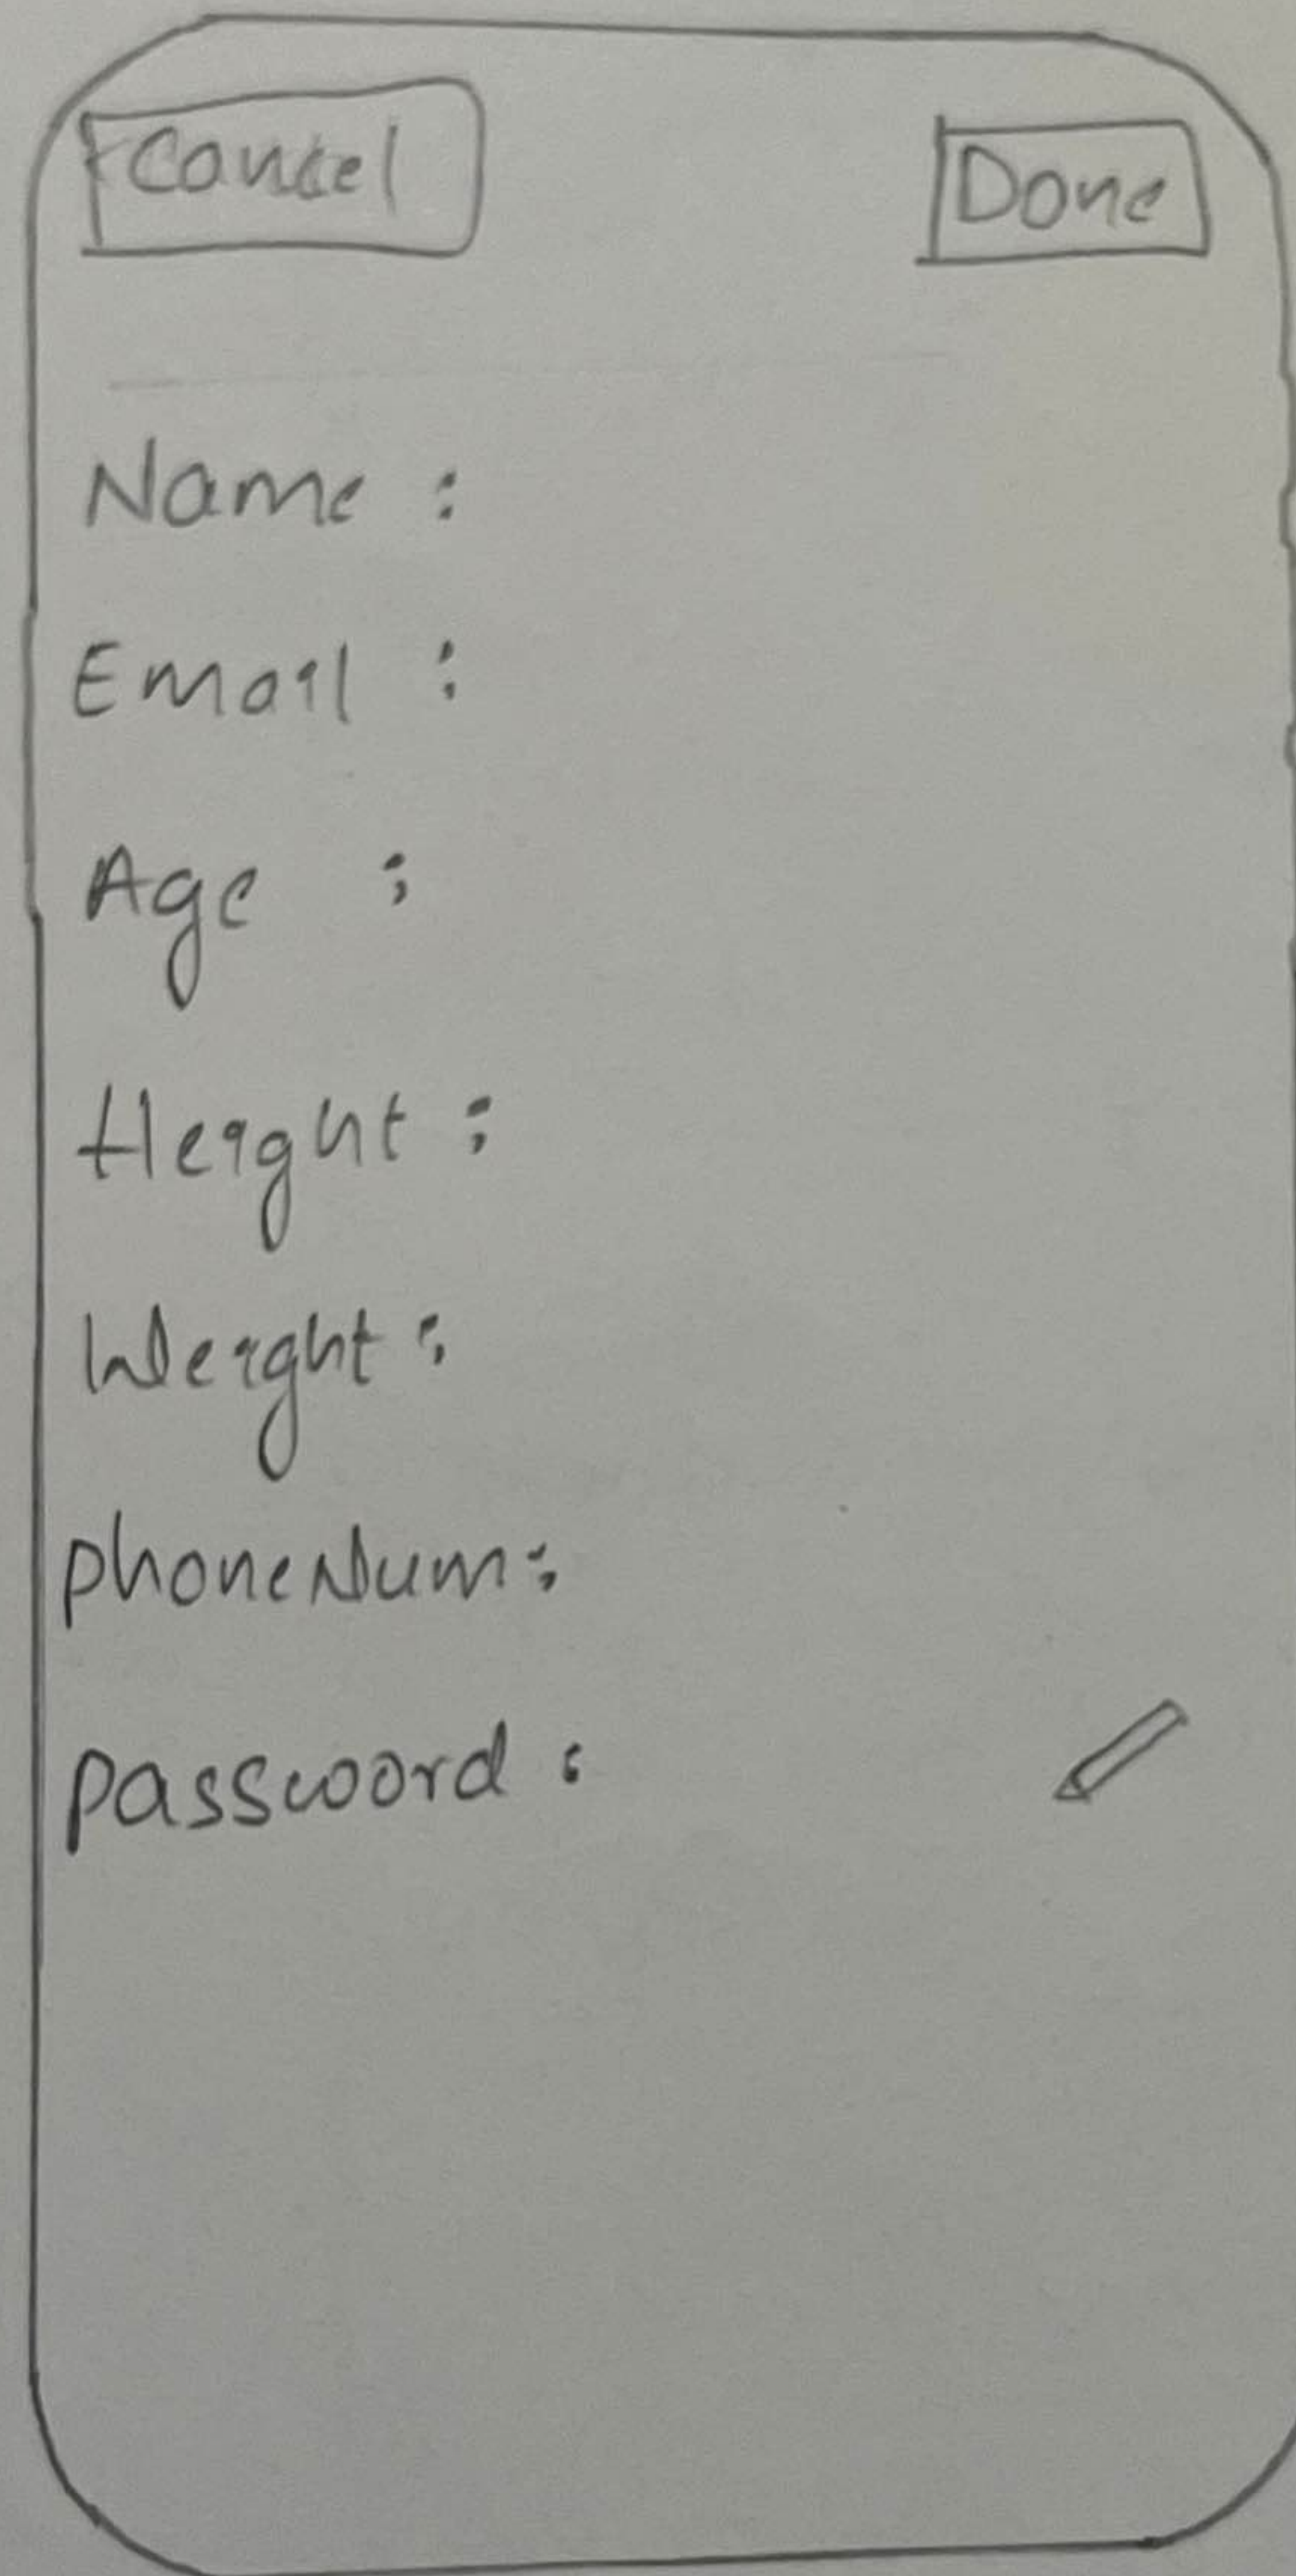 Cancel Done
Name :
Email :
Age :
Height :
Weight :
phoneNum :
password :